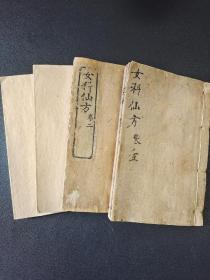 女科仙方 卷二
女科仙方 卷